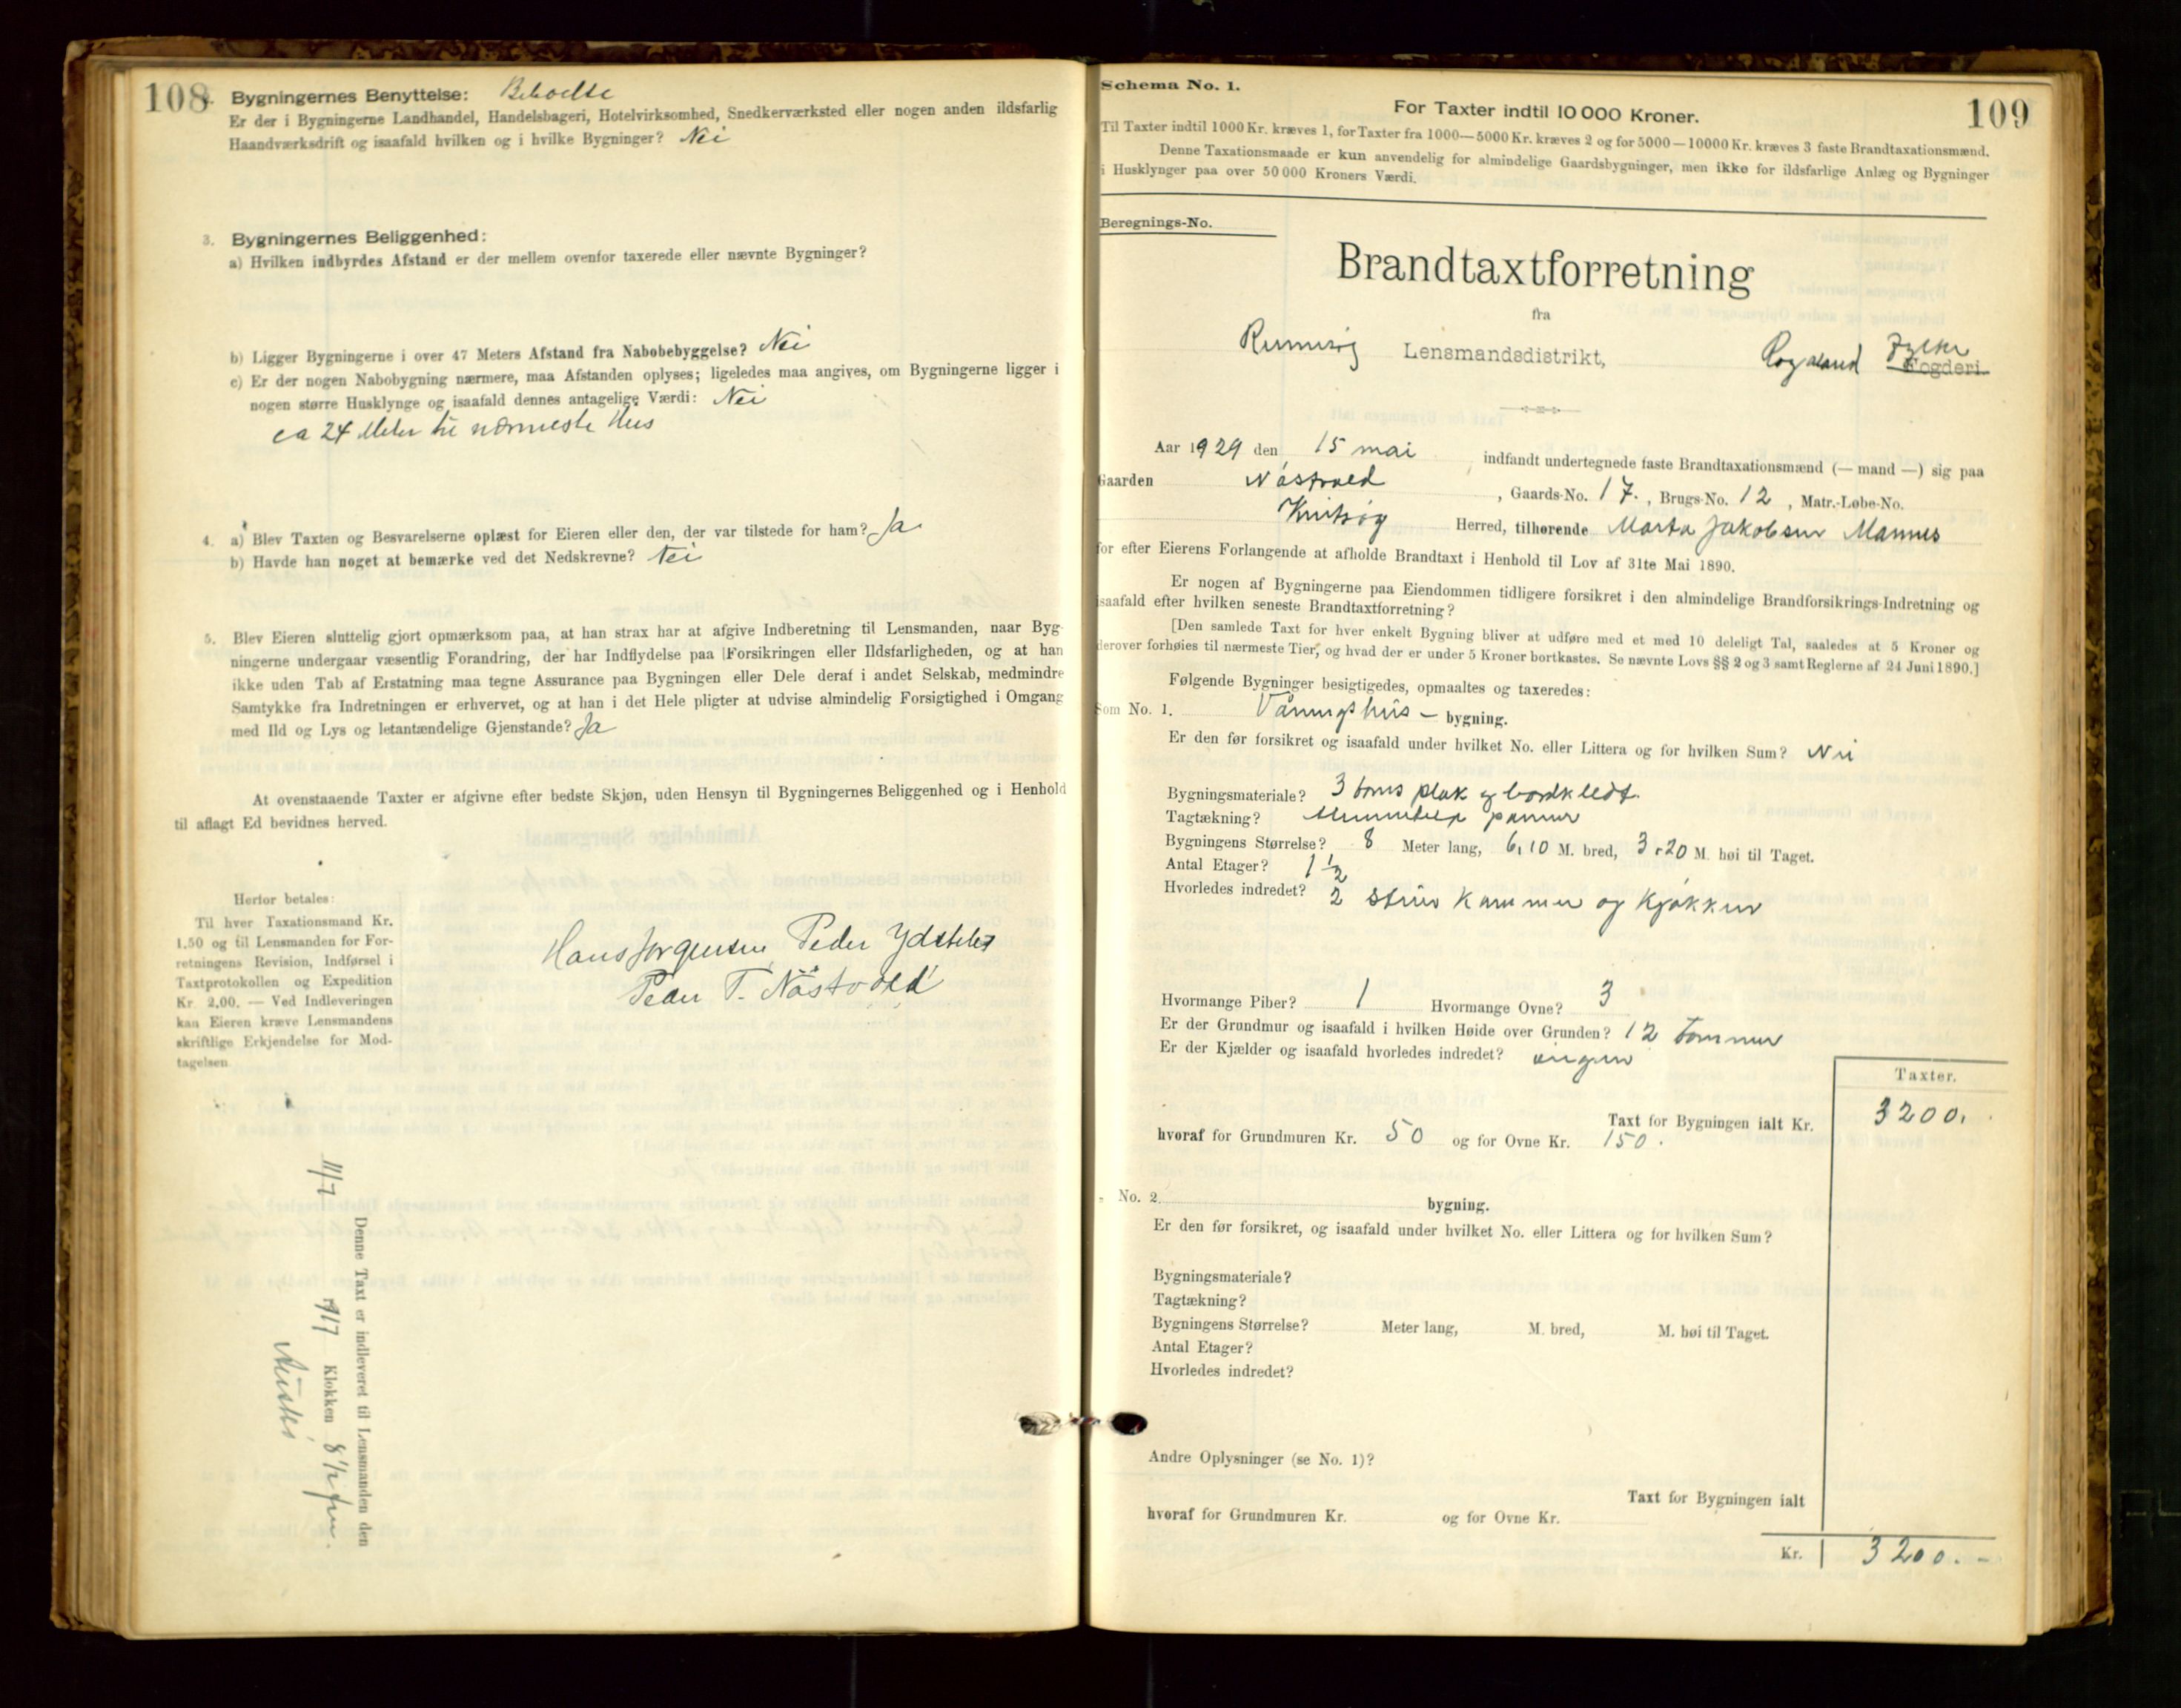 108
Bygningernes Benyttelse: Beboelse
Er der i Bygningerne Landhandel, Handelsbageri, Hotelvirksomhed, Snedkerværksted eller nogen anden ildsfarlig
Haandværksdrift og isaafald hvilken og i hvilke Bygninger? Nei
3. Bygningernes Beliggenhed:
a) Hvilken indbyrdes Afstand er der mellem ovenfor taxerede eller nævnte Bygninger?
b) Ligger Bygningerne i over 47 Meters Afstand fra Nabobebyggelse? Nei
c) Er der nogen Nabobygning nærmere, maa Afstanden oplyses; ligeledes maa angives, om Bygningerne ligger i
nogen større Husklynge og isaafald dennes antagelige Værdi: Nei
ca 24 Meter til nærmeste Hus
4. a) Blev Taxten og Besvarelserne oplæst for Eieren eller den, der var tilstede for ham? Ja
b) Havde han noget at bemærke ved det Nedskrevne? Nei
5. Blev Eieren sluttelig gjort opmærksom paa, at han strax har at afgive Indberetning til Lensmanden, naar Byg-
ningerne undergaar væsentlig Forandring, der har Indflydelse paa Forsikringen eller Ildsfarligheden, og at han
ikke uden Tab af Erstatning maa tegne Assurance paa Bygningen eller Dele deraf i andet Selskab, medmindre
Samtykke fra Indretningen er erhvervet, og at han i det Hele pligter at udvise almindelig Forsigtighed i Omgang
med Ild og Lys og letantændelige Gjenstande? Ja
At ovenstaaende Taxter er afgivne efter bedste Skjøn, uden Hensyn til Bygningernes Beliggenhed og i Henhold
til aflagt Ed bevidnes herved.
Herfor betales:
Til hver Taxationsmand Kr.
1,50 og til Lensmanden for For-
retningens Revision, Indførsel i
Taxtprotokollen og Expedition
Kr. 2,00. — Ved Indleveringen
kan Eieren kræve Lensmandens
skriftlige Erkjendelse for Mod-
tagelsen.
Hans Jørgensen Peder Ydstebø
Peder T. Nåstvold
Denne Taxt er indleveret til Lensmanden den
11/7 Klokken 8 1/2
Schema No. 1.
109
For Taxter indtil 10 000 Kroner.
Til Taxter indtil 1000 Kr. kræves 1, for Taxter fra 1000—5000 Kr. kræves 2 og for 5000—10000 Kr. kræves 3 faste Brandtaxationsmænd.
Denne Taxationsmaade er kun anvendelig for almindelige Gaardsbygninger, men ikke for ildsfarlige Anlæg og Bygninger
i Husklynger paa over 50 000 Kroners Værdi.
Beregnings-No.
Brandtaxtforretning
fra
Lensmandsdistrikt, Rogaland Fylke Fogderi
Aar 1929 den 15 mai indfandt undertegnede faste Brandtaxationsmænd (— mand —) sig paa
Gaarden Nåstvold, Gaards-No. 17., Brugs-No. 12, Matr.-Løbe-No.
Herred, tilhørende Marta Jakobsen Mannes
for efter Eierens Forlangende at afholde Brandtaxt i Henhold til Lov af 31te Mai 1890.
Er nogen af Bygningerne paa Eiendommen tidligere forsikret i den almindelige Brandforsikrings-Indretning og
isaafald efter hvilken seneste Brandtaxtforretning?
[Den samlede Taxt for hver enkelt Bygning bliver at udføre med et med 10 deleligt Tal, saaledes at 5 Kroner og
derover forhøies til nærmeste Tier, og hvad der er under 5 Kroner bortkastes. Se nævnte Lovs §§ 2 og 3 samt Reglerne af 24 Juni 1890.]
Følgende Bygninger besigtigedes, opmaaltes og taxeredes:
Som No. 1. Våningshus - bygning.
Er den før forsikret og isaafald under hvilket No. eller Littera og for hvilken Sum? Nei
Bygningsmateriale? 3 toms plak og bordkledt.
Tagtækning? panner
Bygningens Størrelse? 8 Meter lang, 6,10 M. bred, 3,20 M. høi til Taget.
Antal Etager? 1 1/2
Hvorledes indredet? 2 stuer Kammer og Kjøkken
Hvormange Piber? 1 Hvormange Ovne? 3
Er der Grundmur og isaafald i hvilken Høide over Grunden? 12 tommer
Er der Kjælder og isaafald hvorledes indredet? ingen
Taxter.
Taxt for Bygningen ialt Kr. 3200.
hvoraf for Grundmuren Kr. 50 og for Ovne Kr. 150.
No. 2. bygning.
Er den før forsikret, og isaafald under hvilket No. eller Littera og for hvilken Sum?
Bygningsmateriale?
Tagtækning?
Bygningens Størrelse? Meter lang, M. bred, M. høi til Taget.
Antal Etager?
Hvorledes indredet?
Andre Oplysninger (se No. 1)?
Taxt for Bygningen ialt
hvoraf for Grundmuren Kr. og for Ovne Kr.
Kr. 3200.-